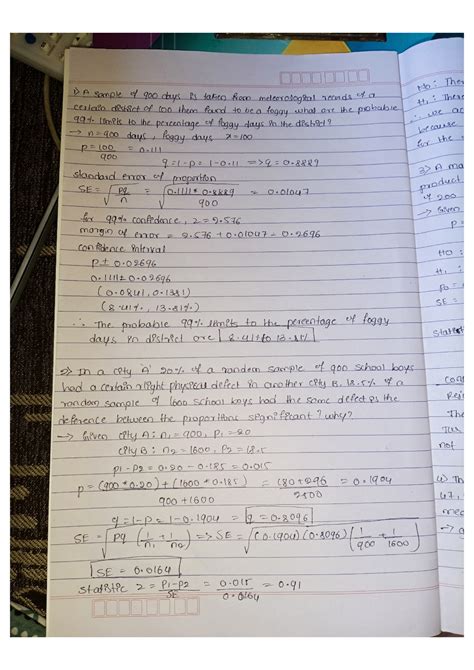 1) A sample of 900 days is taken from meteorological records of a
certain district of 100 them found to be a foggy what are the probable
99% limits to the percentage of foggy days in the district?
→ n=900 days, foggy days x=100
p = 100/900 = 0.111
q=1-p = 1-0.11 => q=0.8889
standard error of proportion
SE = √(pq/n) = √(0.1111* 0.8889/900) = 0.01047
for 99% confidence, z = 2.576
margin of error = 2.576 * 0.01047 = 0.2696
confidence interval
p ± 0.02696
0.1111 ± 0.02696
(0.0841, 0.1381)
(8.41%, 13.81%)
∴ The probable 99% limits to the percentage of foggy
days in district are 8.41% to 13.81%
2) In a city 'A' 20% of a random sample of 900 school boys
had a certain slight physical defect in another city B, 18.5% of a
random sample of 1600 school boys had the same defect is the
deference between the proportions significant? why?
→ Given city A: n1=900, p1=20
city B: n2=1600, P2=18.5
p1-p2 = 0.20 - 0.185 = 0.015
p = (900*0.20)+(1600*0.185)/900+1600 = 180+296/2500 = 0.1904
q=1-p = 1-0.1904 = q=0.8096
SE = √(pq(1/n1+1/n2)) => SE = √((0.1904)(0.8096)(1/900+1/1600))
SE = 0.0164
statistic z = p1-p2/SE = 0.015/0.0164 = 0.91
No: Ther
H1: There
∴ we ac
because
for the
3) A ma
product
of 200
→ Given
P=
H0:
H1:
SE =
Statist
Con
Rej
The
not
4) Th
47,
mea